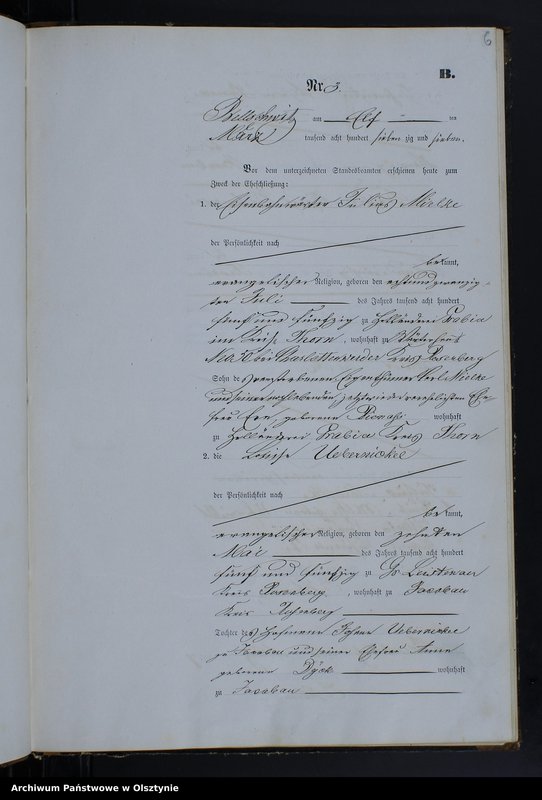 6
B.
Nr. 3.
Bellschwitz am Elf ten
März tausend acht hundert sieben zig und sieben.
Vor dem unterzeichneten Standesbeamten erschienen heute zum
Zweck der Eheschließung:
1. der Eisenbahnwärter Julius Mielke
der Persönlichkeit nach
bekannt,
evangelischer Religion, geboren den achtundzwanzig-
ten Juli des Jahres tausend acht hundert
fünf und fünfzig zu Holländerei Grabia
im Kreise Thorn, wohnhaft zu
bei Kreis Rosenberg
Sohn des verstorbenen Eigenthümer Mielke
und seiner Ehe-
frau geborene wohnhaft
zu Holländerei Grabia Kreis Thorn
2. die Louise Uebernickel
der Persönlichkeit nach
bekannt,
evangelischer Religion, geboren den zehnten
Mai des Jahres tausend acht hundert
fünf und fünfzig zu Gr Leistenau
Kreis Rosenberg, wohnhaft zu Jacobau
Kreis Rosenberg
Tochter des Hofmann Uebernickel
zu Jacobau und seiner Ehefrau Anna
geborene Dyck wohnhaft
zu Jacobau
Archiwum Państwowe w Olsztynie